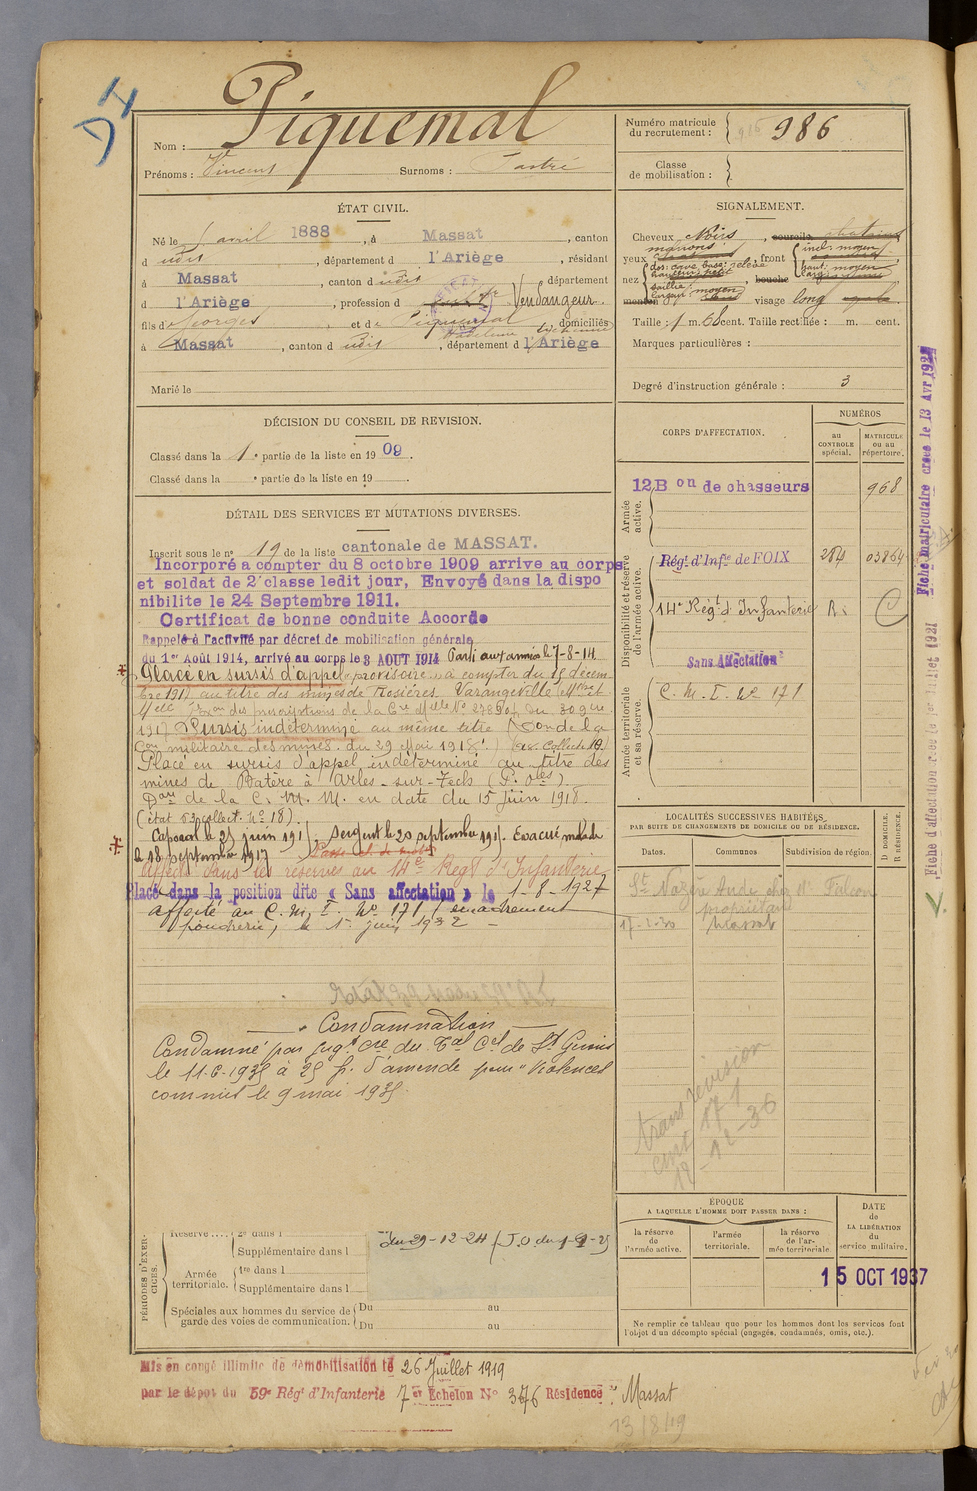 Nom : Piquemal
Prénoms : Vincent Surnoms : Castré
Numéro matricule
du recrutement : 986
Classe
de mobilisation :
ÉTAT CIVIL.
Né le 1 avril 1888, à Massat, canton
d udit, département d l'Ariège, résidant
à Massat, canton d udit, département
d l'Ariège, profession d Vendangeur.
fils de Georges et de Piquemal domiciliés
à Massat, canton d udit, département d l'Ariège
Marié le
SIGNALEMENT.
Cheveux Noirs, sourcils châtains
yeux marrons, front incl: moyen
haut: moyen
nez dos: cave, base: relevé, bouche
saillie
largeur moyen
menton visage long
Taille : 1 m. 68 cent. Taille rectifiée : m. cent.
Marques particulières :
Degré d'instruction générale : 3
DÉCISION DU CONSEIL DE REVISION.
Classé dans la 1e partie de la liste en 1909.
Classé dans la e partie de la liste en 19 .
DÉTAIL DES SERVICES ET MUTATIONS DIVERSES.
Inscrit sous le n° 19 de la liste cantonale de MASSAT.
Incorporé a compter du 8 octobre 1909 arrive au corps
et soldat de 2e classe ledit jour, Envoyé dans la dispo
nibilite le 24 Septembre 1911.
Certificat de bonne conduite Accorde
Rappelé à l'activité par décret de mobilisation générale
du 1er Août 1914, arrivé au corps le 3 AOUT 1914 Parti aux armées le 7-8-14
Placé en sursis d'appel provisoire à compter du 15 décem-
bre 1917 au titre des mines de Rosières, Varangeville (Mthe et
Melle)
1917 Sursis indéterminé au même titre (Don de la
Don militaire des mines. du 29 Mai 1918.) (Collectif 18)
Placé en sursis d'appel indéterminé au titre des
mines de Batère à Arles-sur-Tech (P. Oles)
Don de la C. M. M. en date du 15 Juin 1918.
(état 53 collect. N° 18).
Caporal le 25 juin 191 . Sergent le 20 septembre 191 . Evacué malade
le 18 septembre 1917
Affecté dans les réserves au 14e Régt d'Infanterie
Placé dans la position dite « Sans affectation » le 1-8-1927
Affecté au C. M. I. N° 171 / détachement
poudrerie, le 1er juin 1932 -
Condamnation
Condamné par jugt cre du Tal Cel de St Girons
le 11-6-1935 à 25 f. d'amende pour "Violences
commis le 9 mai 1935.
CORPS D'AFFECTATION.
NUMÉROS
au
CONTROLE
spécial.
MATRICULE
ou au
répertoire.
Armée
active.
12 Bon de chasseurs 968
Disponibilité et réserve
de l'armée active.
Régt d'Infie de FOIX 284 03864
14e Régt d'Infanterie R.
Sans Affectation
Armée territoriale
et sa réserve.
C. M. I. N° 171
LOCALITÉS SUCCESSIVES HABITÉES
PAR SUITE DE CHANGEMENTS DE DOMICILE OU DE RÉSIDENCE.
Dates. Communes Subdivision de région. D DOMICILE.
R RÉSIDENCE.
St Nazaire Aude chez Mr Falcon
propriétaire
17-2-30 Massat
trans revision
cmt 171
12-12-36
ÉPOQUE
A LAQUELLE L'HOMME DOIT PASSER DANS :
la réserve
de
l'armée active.
l'armée
territoriale.
la réserve
de l'ar-
mée territoriale.
DATE
de
LA LIBÉRATION
du
service militaire.
15 OCT 1937
Ne remplir ce tableau que pour les hommes dont les services font
l'objet d'un décompte spécial (engagés, condamnés, omis, etc.).
PÉRIODES D'EXER-
CICES.
Réserve .... 2e dans l
Supplémentaire dans l
Armée
territoriale. 1re dans l
Supplémentaire dans l
Spéciales aux hommes du service de
garde des voies de communication. Du au
Du au
du 29-12-24 (J.O. du 1-1-25
Mis en congé illimité de démobilisation le 26 Juillet 1919
par le dépôt du 59e Régt d'Infanterie 7e Echelon N° 376 Résidence : Massat
13/8/19
Fiche matriculaire créée le 13 Avr 192
Fiche d'affectation créée le 1er Juillet 1921